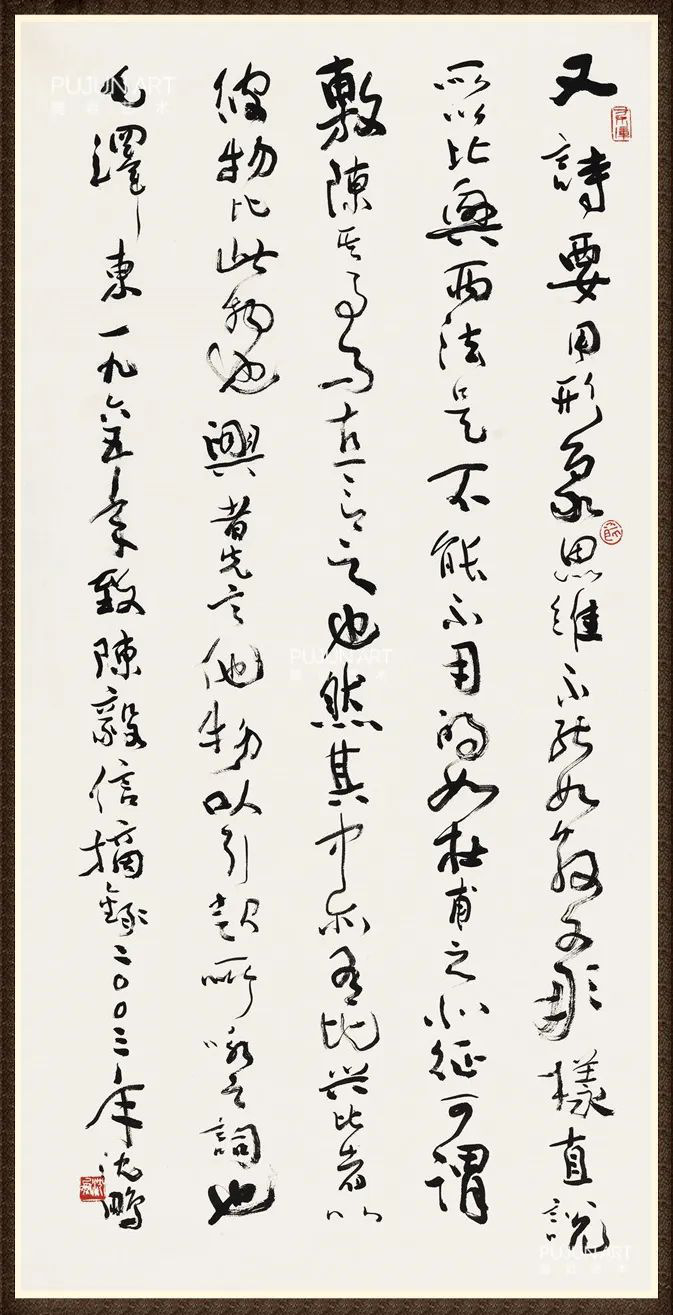 又詩要用形象思維不能如散文那樣直說
所以比興兩法是不能不用的如杜甫之北征可謂
敷陳其事而直言之也然其中亦有比兴比者以
彼物比此物也興者先言他物以引起所咏之詞也
毛澤東一九六五年致陳毅信摘錄二〇〇三年沈鵬
PUJUN ART
PUJUN ART
PUJUN ART